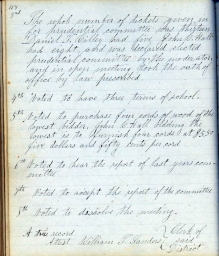 The whole number of tickets given in
for prudential committee was thirteen
Daniel C. Colby had five John C. Hall
had eight, and was declared elected
prudential committee by the moderator
and in open meeting took the oath of
office by law prescribed
4th Voted to have three terms of school.
5th Voted to purchase four cords of wood of the
lowest bidder, John C. Hall being the
lowest to furnish four cords at $5.50
five dollars and fifty cents per cord
6th Voted to hear the report of last years com-
mittee
7th Voted to accept the report of the committee
8th Voted to dissolve the meeting.
A true record
Attest William F. Sanders Clerk of
said
District